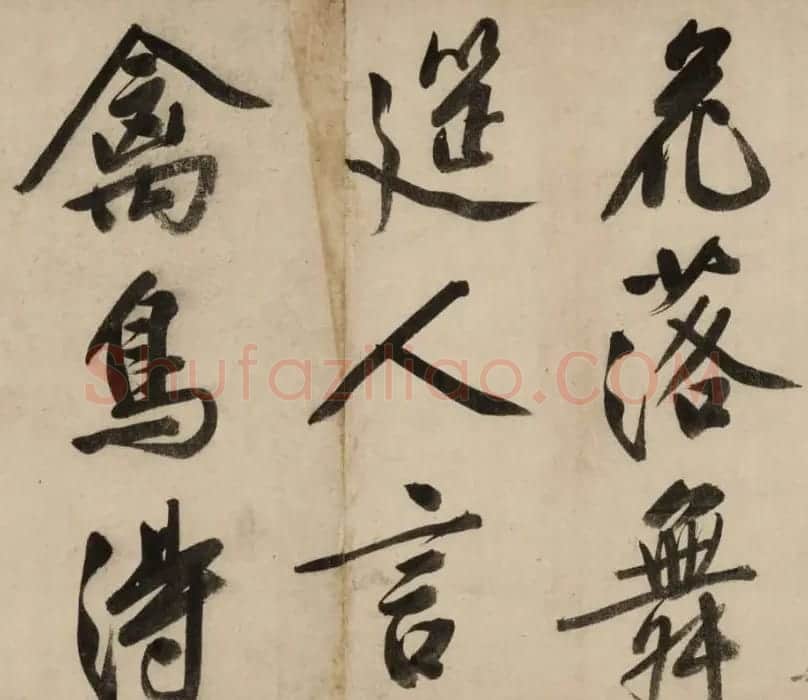 花落舞
筵人言
禽鳥得
Shufaziliao.COM